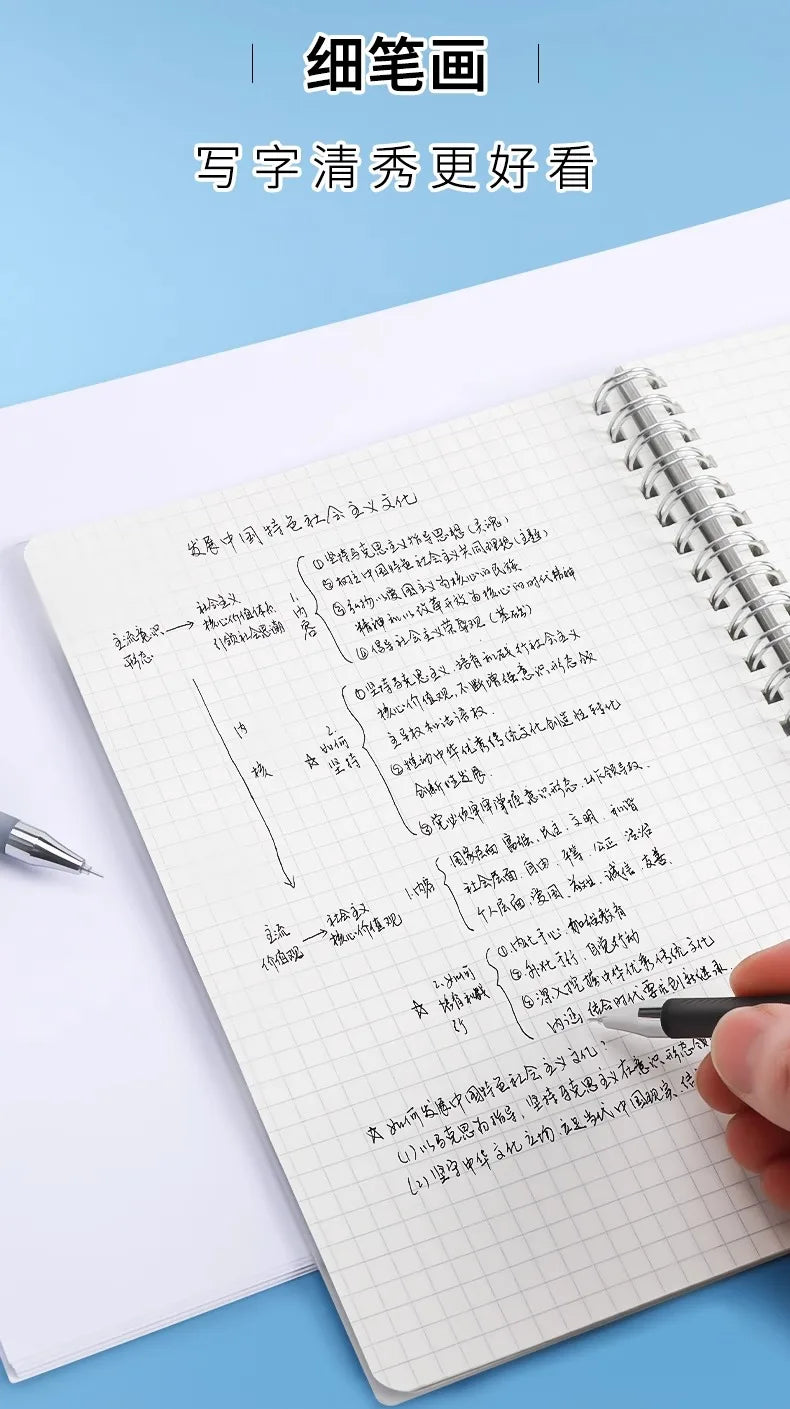 细笔画
写字清秀更好看
发展中国特色社会主义文化
主流意识
形态
社会主义
核心价值体系
引领社会思潮
1.内容
①坚持马克思主义指导思想(灵魂)
②树立中国特色社会主义共同理想(主题)
③弘扬以爱国主义为核心的民族
精神和以改革开放为核心的时代精神
④倡导社会主义荣辱观(基础)
内核
☆
2.如何
坚持
①坚持马克思主义 培育和践行社会主义
核心价值观,不断增强意识形态领
主导权和话语权.
②推动中华优秀传统文化创造性转化
创新性发展.
③党必须牢牢掌握意识形态工作领导权.
主流
价值观
社会主义
核心价值观
1.内容
国家层面 富强、民主、文明、和谐
社会层面、自由、平等、公正、法治
个人层面、爱国、敬业、诚信、友善.
☆
2.如何
培育和践
行
①.内化于心 加强教育
②.外化于行、自觉行动
③.深入挖掘中华优秀传统文化
内涵 结合时代要求创新继承.
☆如何发展中国特色社会主义文化?
(1)以马克思为指导,坚持马克思主义在意识形态领
(2)坚守中华文化立场 立足当代中国现实、结